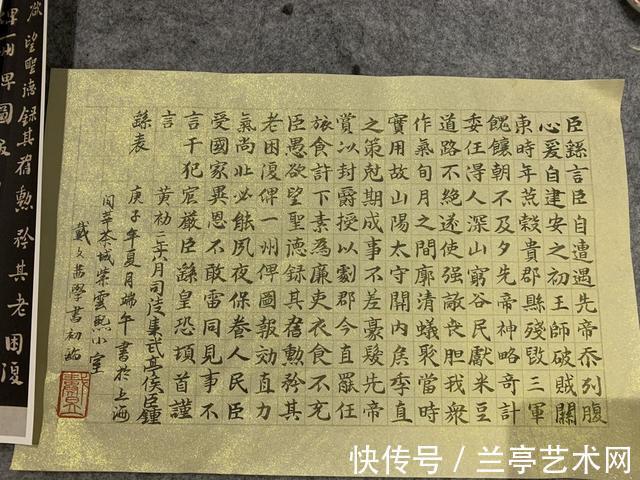 臣繇言臣自遭遇先帝忝列腹
心爰自建安之初王師破賊關
東時年荒穀貴郡縣殘毀三軍
餽饟朝不及夕先帝神略奇計
委任得人深山窮谷民獻米豆
道路不絕遂使強敵喪胆我衆
作氣旬月之間廓清蟻聚當時
實用故山陽太守關內侯季直
之策剋期成事不差豪髮先帝
賞以封爵授以劇郡今直罷任
旅食許下素為廉吏衣食不充
臣愚欲望聖德錄其舊勳矜其
老困復俾一州俾圖報効直力
氣尚壯必能夙夜保養人民臣
受國家異恩不敢雷同見事不
言干犯宸嚴臣繇皇恐頓首謹
言 黃初二年八月司徒東武亭侯臣鍾
繇表 庚子年夏月端午書於上海
茶城紫雲熙小室
戴文學書初稿
望聖德錄其舊勳矜其老困復
俾一州俾圖
快传号／兰亭艺术网